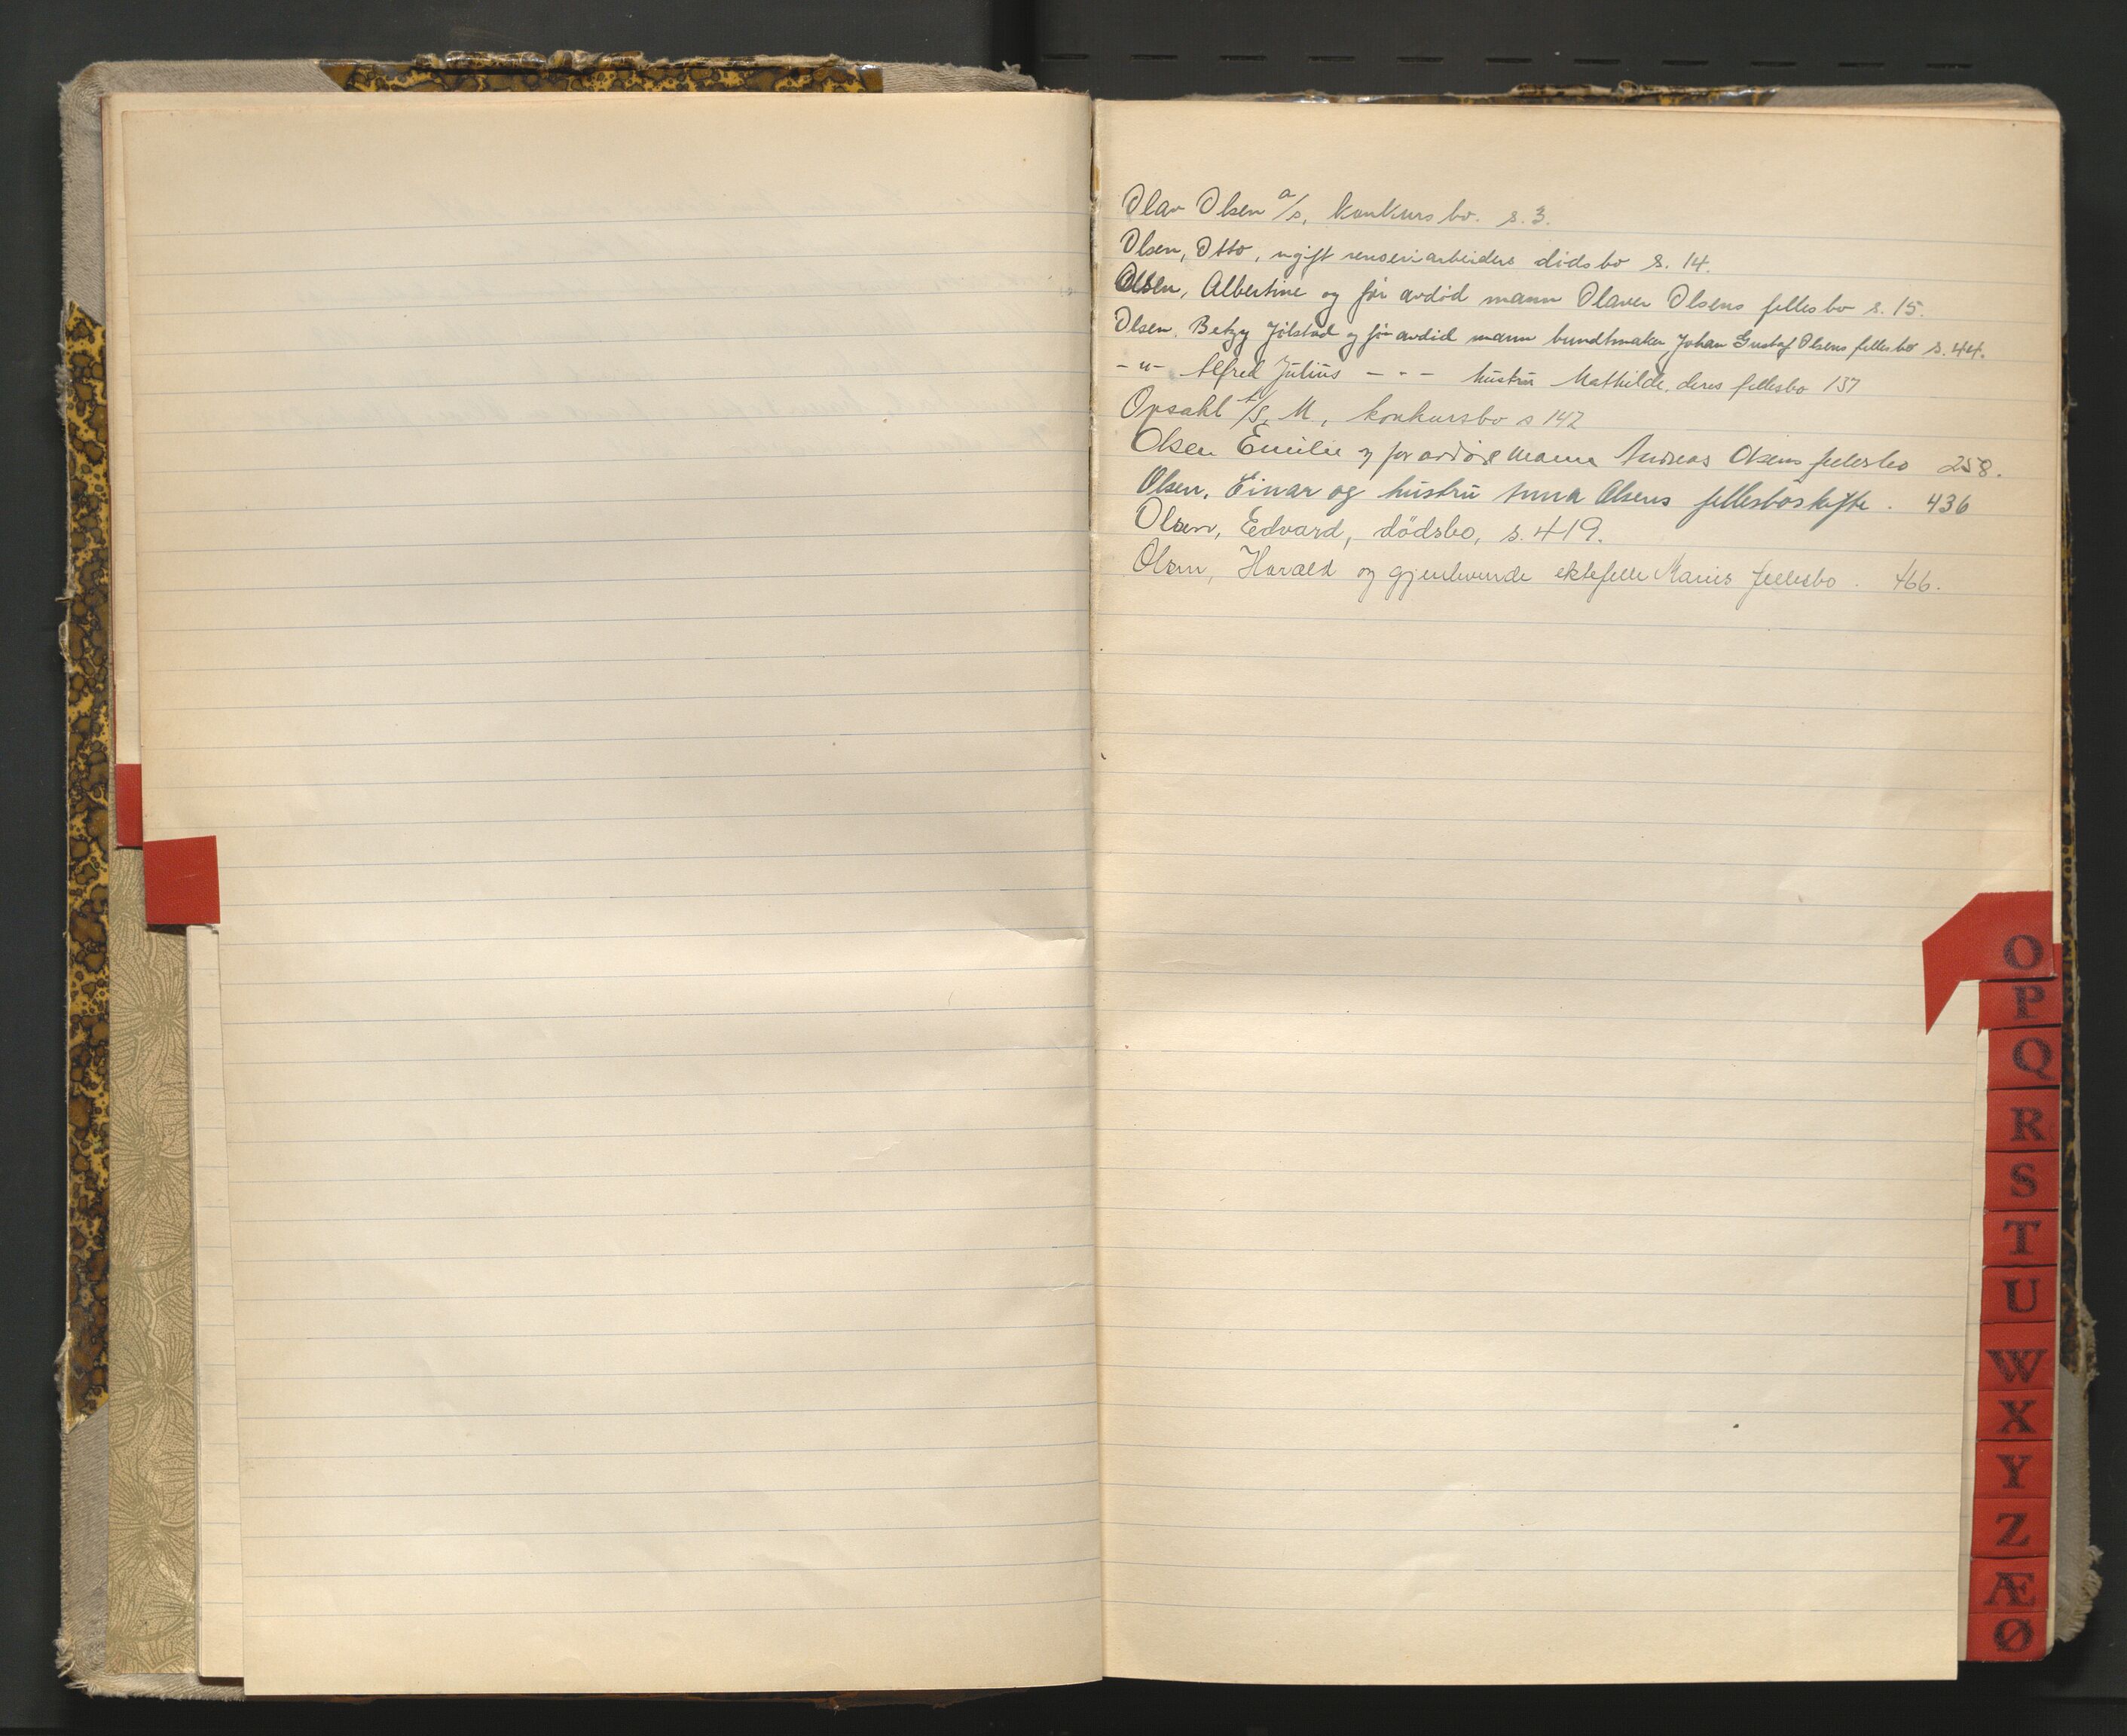 Olav Olsen a/s, konkursbo. s. 3.
Olsen, Otto, ugift renseriarbeiders dødsbo s. 14.
Olsen, Albertine og før avdød mann Olaver Olsens fellesbo s. 15.
Olsen, Betzy Jølstad og før avdød mann bundtmaker Johan Gustaf Olsens fellesbo s. 44.
- " - Alfred Julius - " - hustru Mathilde, deres fellesbo 137
Opsahl A/S, M, konkursbo s 142
Olsen Emilie og før avdøde mann Andreas Olsens fellesbo 258.
Olsen, Einar og hustru Anna Olsens fellesboskifte. 436
Olsen, Edvard, dödsbo, s. 419.
Olsen, Harald og gjenlevende ektefelle fellesbo. 466.
O
P
Q
R
S
T
U
W
X
Y
Z
Æ
Ø